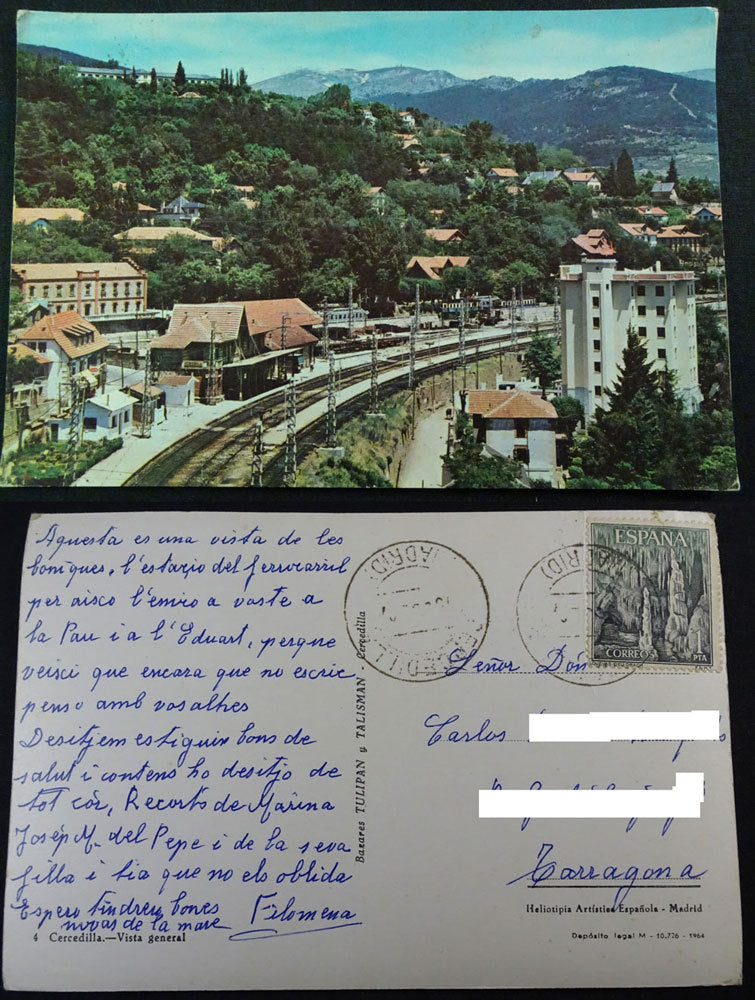 Aquesta es una vista de les
boniques, l'estazio del ferrocarril
per aisco l'emvio a voste a
la Pau i a l'Eduart, perque
veisci que encara que no escric
penso amb vosalhes
Desitjem estiguin bons de
salut i contens ho desitjo de
tot còr, Recorts de Marina
Josép Mª del Pepe i de la seva
filla i tia que no els oblida
Espero tindreu bones
novas de la mare Filomena
4 Cercedilla.—Vista general
Bazares TULIPAN y TALISMAN Cercedilla
CERCEDILLA (MADRID)
(MADRID)
ESPAÑA
CORREOS PTA
Señor Dón
Carlos
Tarragona
Heliotipia Artística Española - Madrid
Depósito legal M - 10.726 - 1964